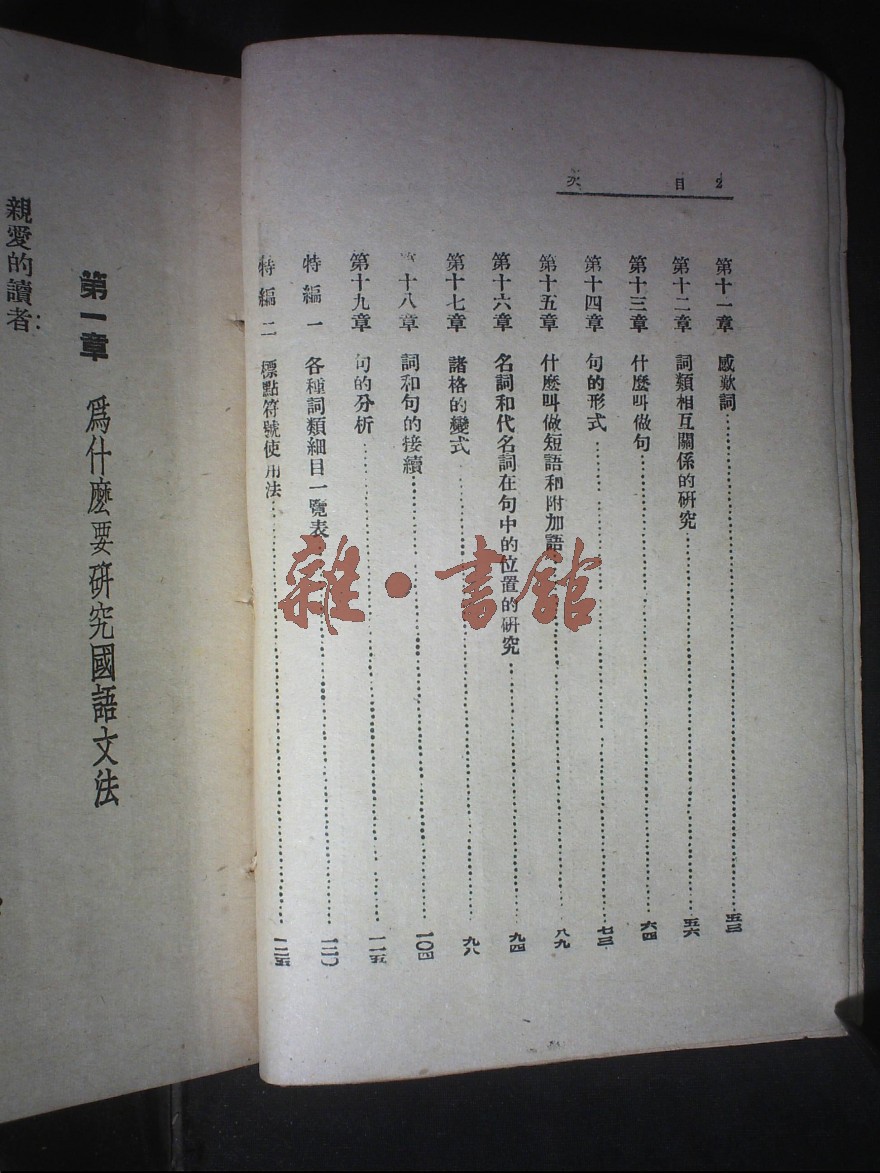 2 目次
第十一章 感歎詞 五三
第十二章 詞類相互關係的研究 五六
第十三章 什麼叫做句 六四
第十四章 句的形式 七三
第十五章 什麼叫做短語和附加語 八九
第十六章 名詞和代名詞在句中的位置的研究 九四
第十七章 諸格的變式 九八
第十八章 詞和句的接續 一〇四
第十九章 句的分析 一一五
特編一 各種詞類細目一覽表 一二〇
特編二 標點符號使用法 一二五
第一章 爲什麼要研究國語文法
親愛的讀者:
雜·書館